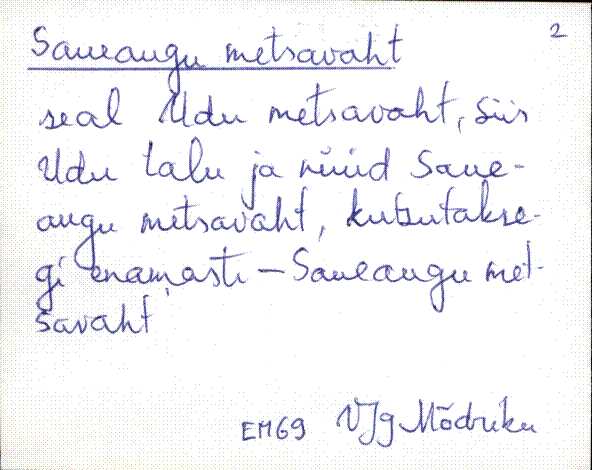 2
Saueaugu metsavaht
seal Udu metsavaht, siis
Udu talu ja nüüd Saue-
augu metsavaht, kutsutakse-
gi enamasti – Saueaugu met-
savaht
EM69 VJg Mõdriku